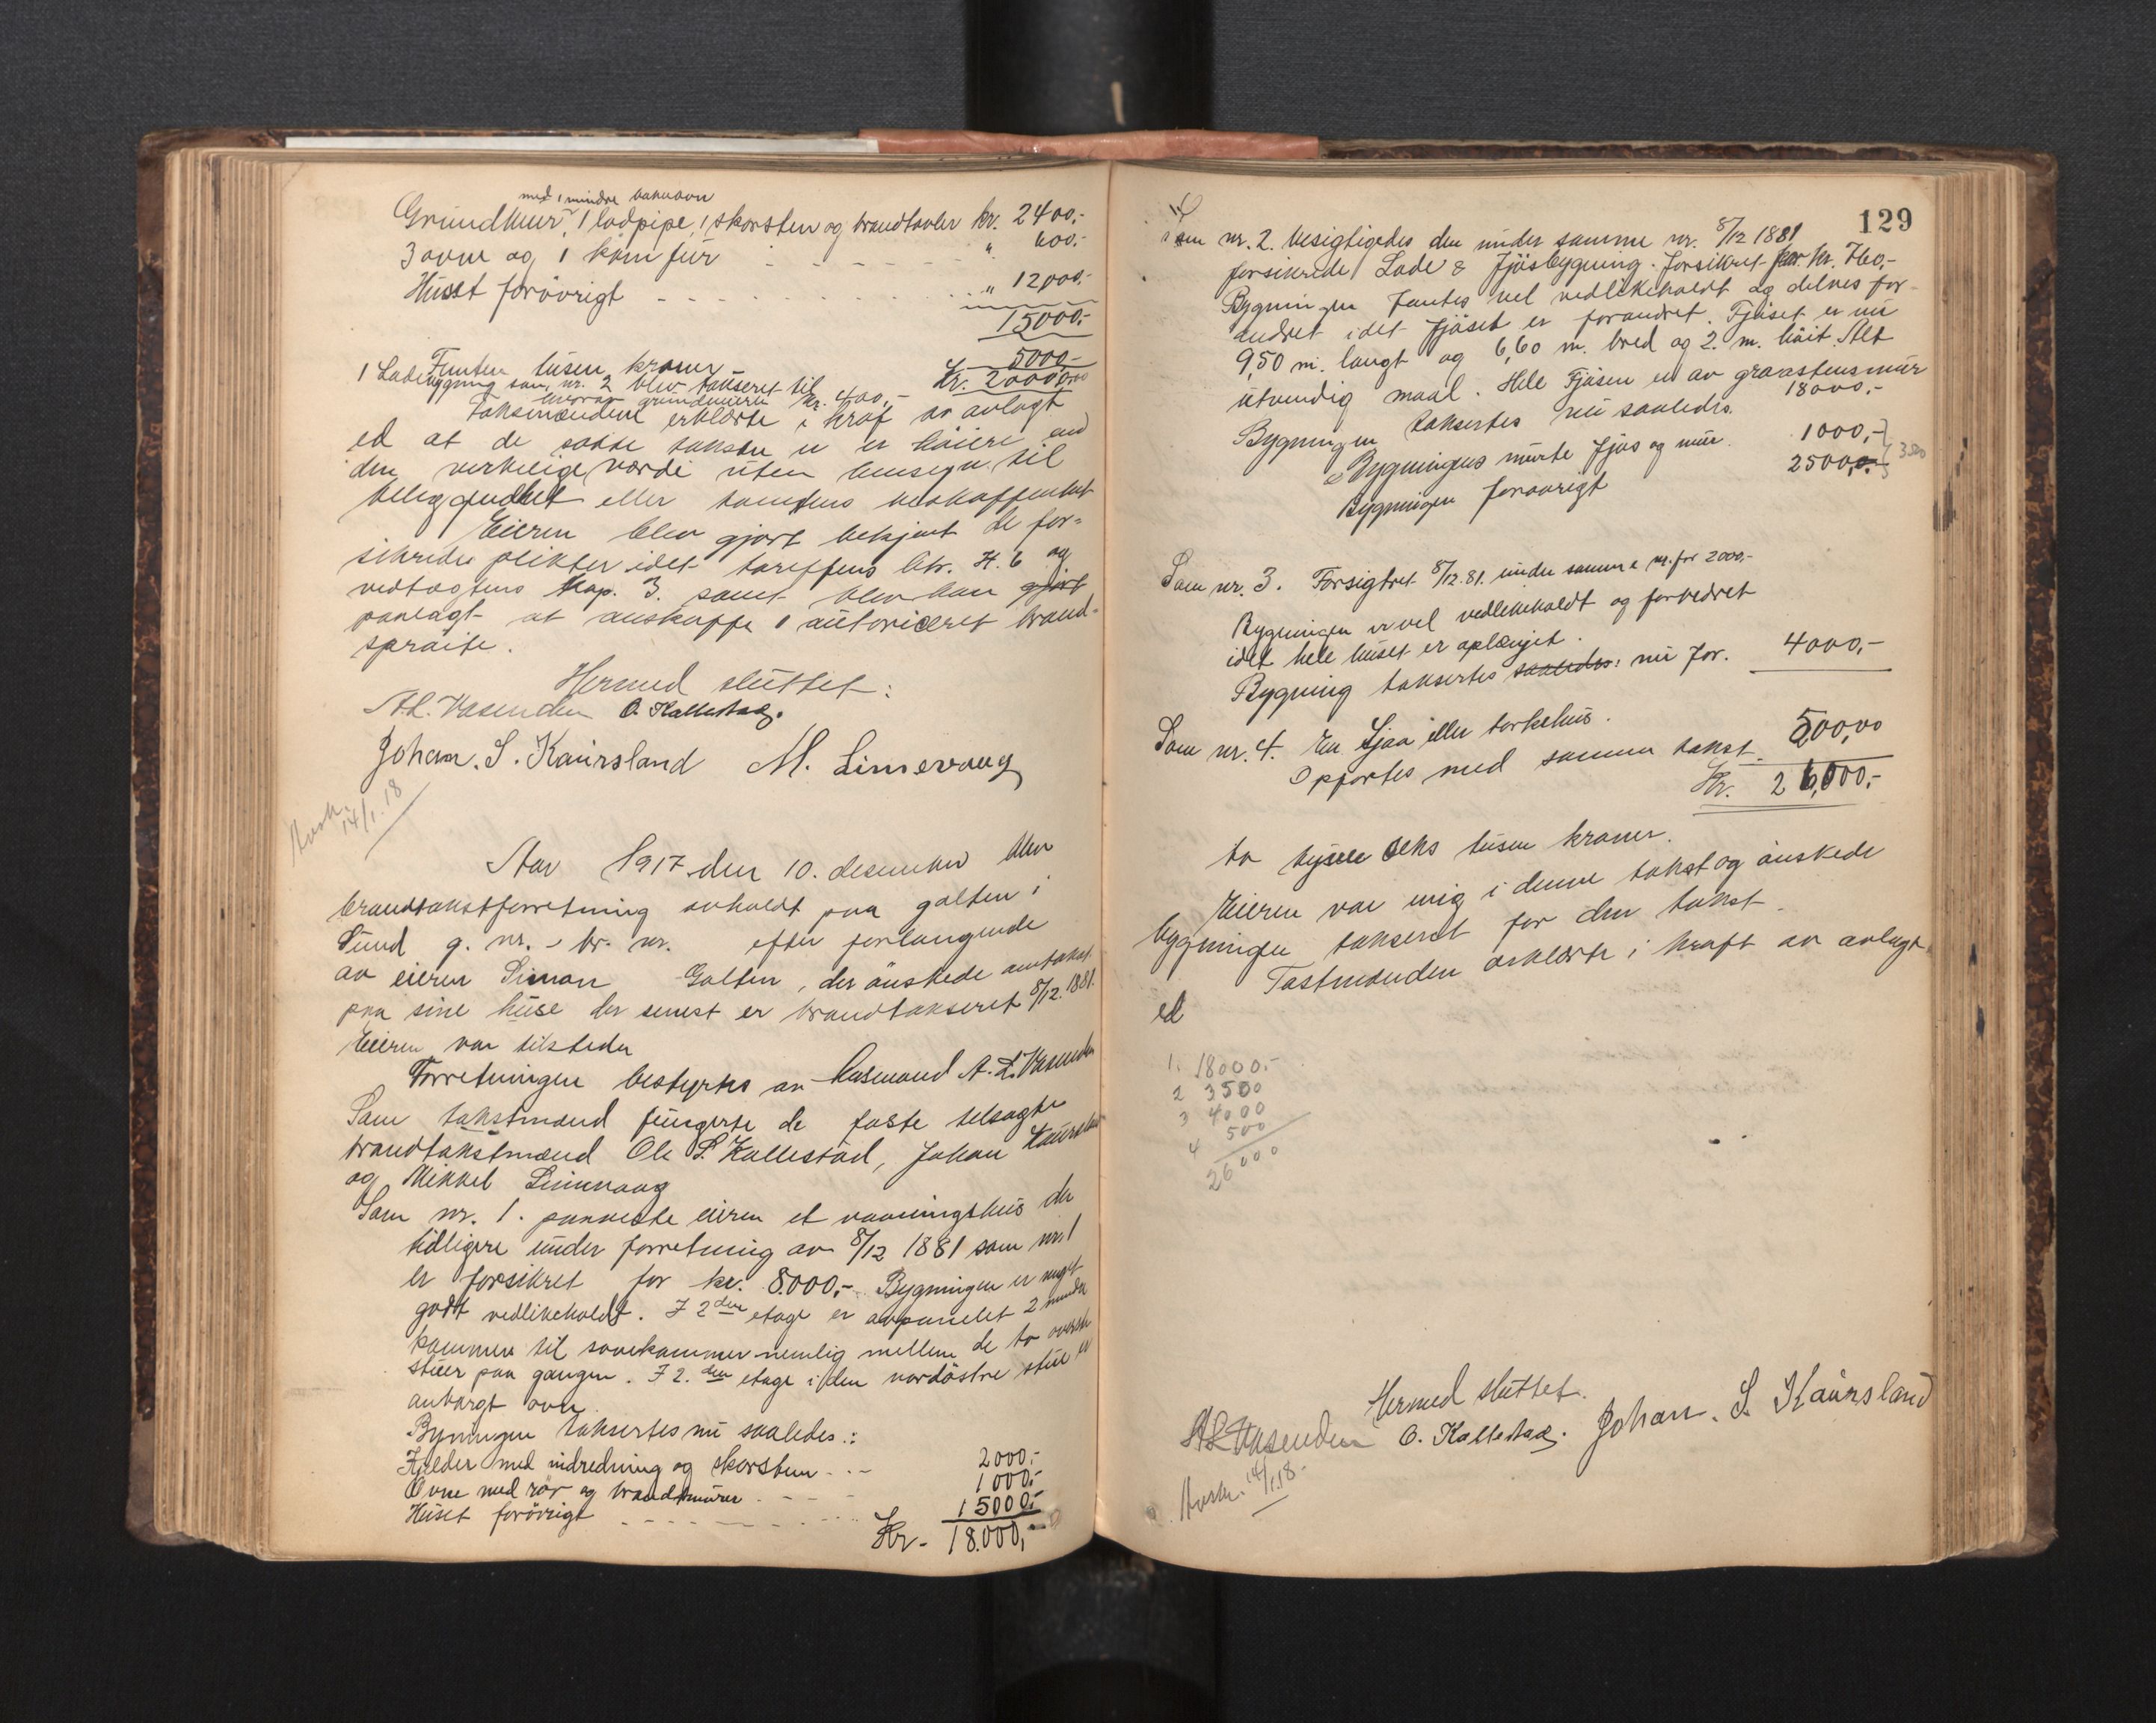 med 1 mindre bakeovn
Grundmur, 1 ladpipe, 1 skorsten og brandtavler kr. 2400,-
3 ovne og 1 komfür " 600,-
Huset forövrigt " 12000,-
15000,-
Femten tusen kroner
1 Ladebygning som nr. 2 blev takseret til 5000,-
hvorav grundmuren kr. 400,- Kr. 20000,00
Taksmændene erklærte i kraf av avlagt
ed at de satte takster ei er höiere end
den verkelige værdi uten hensyn til
beliggenhet eller tomtens beskaffenhet
Eieren blev gjort bekjent de for-
sikredes plikter idet tariffens litr. H. 6 og
vedtagtens kap. 3. samt blev han gjort
paalagt at anskaffe 1 autoriceret brand-
spröite.
Hermed sluttet:
A.L. Vasenden O. Kallestad.
Johan. S. Kaursland M. Limevaag
Avsk. 14/1. 18
Aar 1917 den 10. desember blev
brandtakstforretning avholdt paa galten i
Sund g. nr. - br. nr. efter forlangende
av eieren Simon Galten, der önskede omtakst
paa sine huse der senest er brandtakseret 8/12. 1881.
Eieren var tilstede
Forretningen bestyrtes av lensmand A. L. Vasenden
Som takstmænd fungerte de faste
brandtakstmænd Ole S. Kallestad, Johan Kaursland
og Mikkel Limevaag
Som nr. 1. paaviste eieren et vaaningshus der
tidligere under forretning av 8/12 1881 som nr. 1
er forsikret for kr. 8000,- Bygningen er meget
godt vedlikeholdt. I 2den etage er avpanelet 2 mindre
kammere til sovekammer nemlig mellem de to
stuer paa gangen. I 2.den etage i den nordöstre stue er
anbragt ovn.
Bygningen taksertes nu saaledes.:
Kjelder med indredning og skorsten 2000,-
Ovne med rör og brandmurer 1000,-
Huset forövrigt 15000,-
Kr. 18.000,-
129
Som nr. 2. besigtigedes den under samme nr. 8/12 1881
forsikrede Lade & Fjösbygning. Forsikret for kr. 760,-
Bygningen fantes vel vedlikeholdt og delves for-
andret idet fjöset er forandret. Fjöset er nu
9,50 m. langt og 6,60 m. bred og 2. m. höit. Alt
utvendig maal. Hele Fjösen er av graastensmur
Bygningen taksertes nu saaledes. 18000,-
Bygningens murte fjös og mur. 1000,-
Bygningen forövrigt 2500,0. 3500
Som nr. 3. Forsigtret 8/12.81. under samme nr. for 2000,-
Bygningen er vel vedlikeholdt og forbedret
idet hele huset er oplængjet.
Bygning taksertes saaledes: nu for. 4000,-
Som nr. 4. En Sjaa eller torkehus.
Opfortes med samme takst 500,00
Kr. 26,000,-
to tyve seks tusen kroner.
Eieren var enig i denne takst og önskede
bygningen takseret for den takst.
Tastmænden erklærte i kraft av avlagt
ed
1. 18000,-
2 3500
3 4000
4 500
26000
Hermed sluttet.
A L Vasenden O. Kallestad. Johan. S. Kaursland
Avskr. 14/1.18.